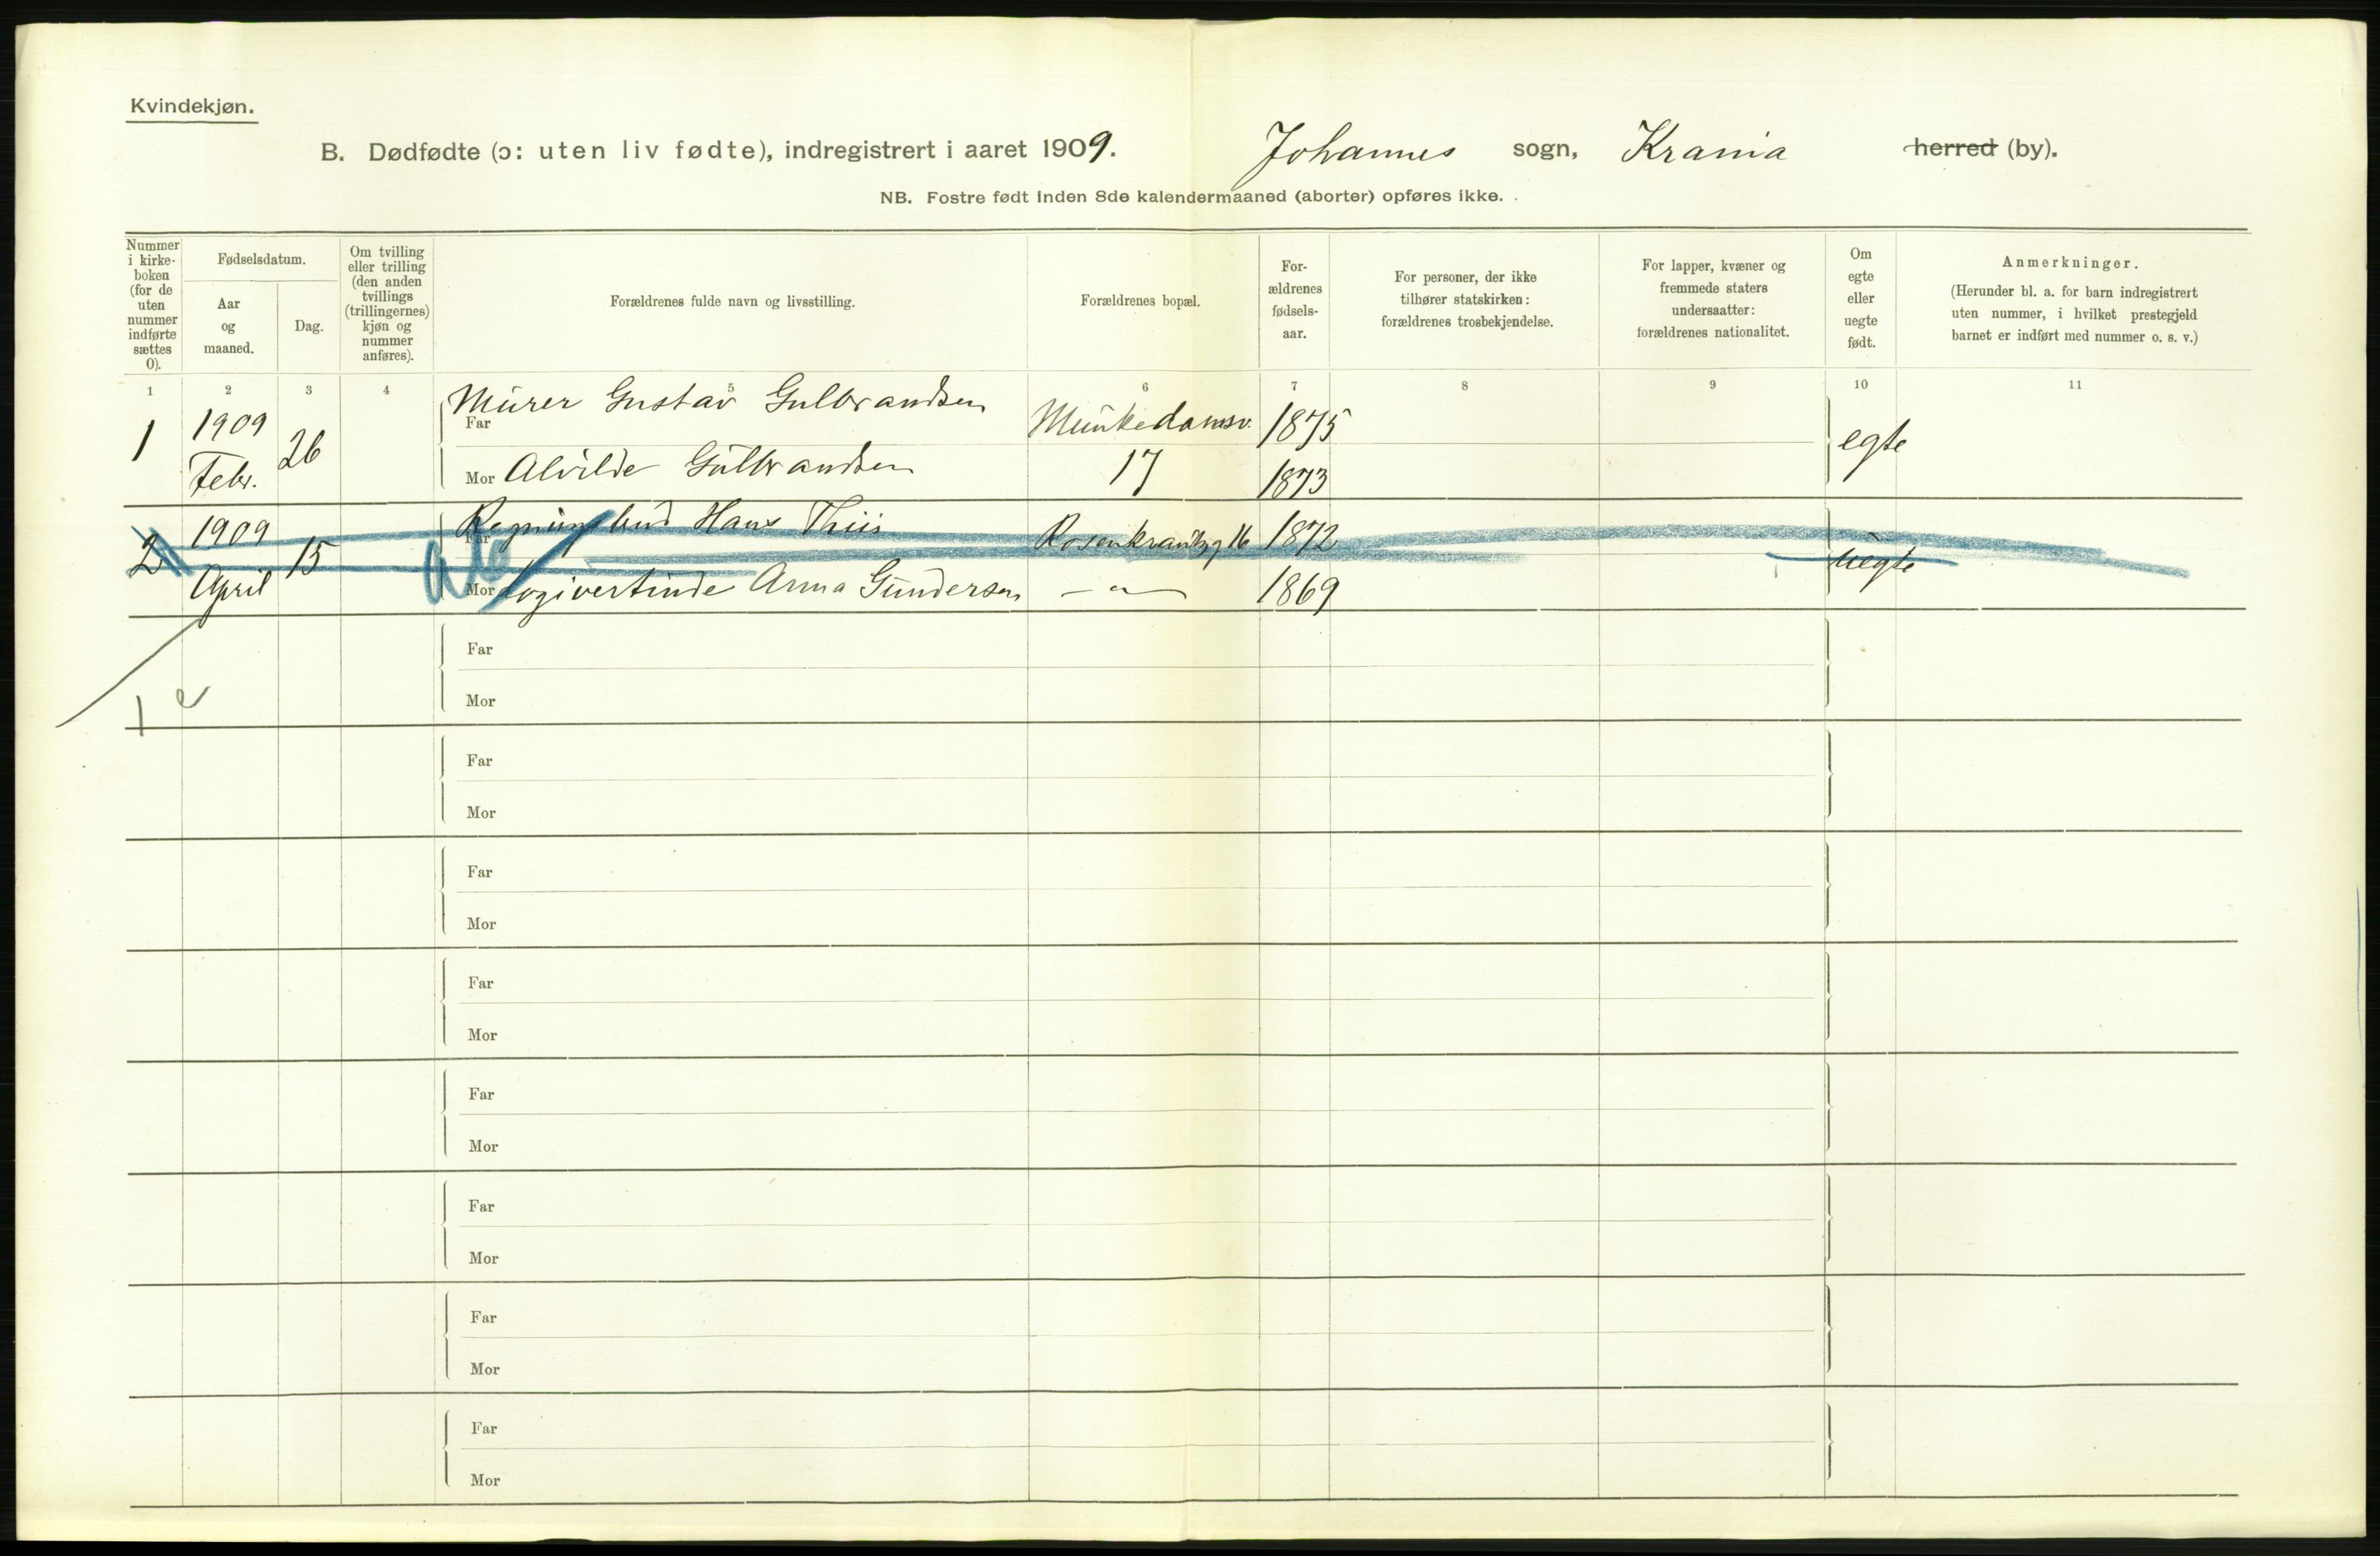 Kvindekjøn.
B. Dødfødte (ɔ: uten liv fødte), indregistrert i aaret 1909. Johannes sogn, Krania herred (by).
NB. Fostre født inden 8de kalendermaaned (aborter) opføres ikke.
Nummer i kirke-boken (for de uten nummer indførte sættes 0).
Fødselsdatum.
Aar og maaned.
Dag.
Om tvilling eller trilling (den anden tvillings (trillingernes) kjøn og nummer anføres).
Forældrenes fulde navn og livsstilling.
Forældrenes bopæl.
For-ældrenes fødsels-aar.
For personer, der ikke tilhører statskirken: forældrenes trosbekjendelse.
For lapper, kvæner og fremmede staters undersaatter: forældrenes nationalitet.
Om egte eller uegte født.
Anmerkninger.
(Herunder bl. a. for barn indregistrert uten nummer, i hvilket prestegjeld barnet er indført med nummer o. s. v.)
1 2 3 4 5 6 7 8 9 10 11
1 1909 Febr. 26
Far Murer Gustav Gulbrandsen Munkedamsv. 1875 egte
Mor Alvilde Gulbrandsen 17 1873
2 1909 April 15
Far Hans Thiis Rosenkrantzg 16 1872 uegte
Mor Logivertinde Anna Gundersen — " — 1869
1 e
Far
Mor
Far
Mor
Far
Mor
Far
Mor
Far
Mor
Far
Mor
Far
Mor
Far
Mor